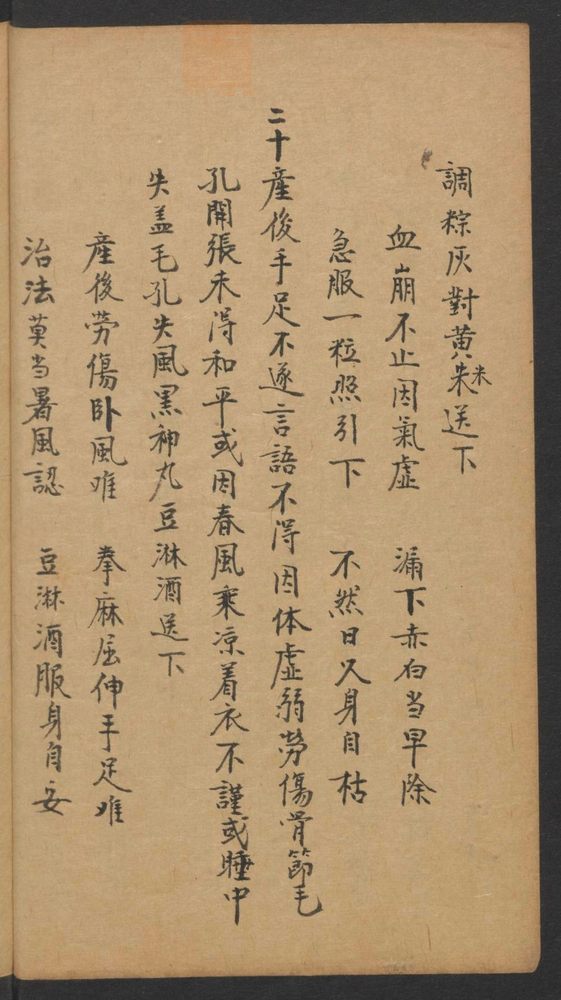 調粽灰對黃朱米送下
血崩不止因氣虛　漏下赤白当早除
急服一粒照引下　不然日久身自枯
二十産後手足不遂言語不得因体虛弱勞傷骨節毛
孔開張未得和平或因春風乘凉着衣不謹或睡中
失盖毛孔失風黑神丸豆淋酒送下
産後勞傷卧風难　拳麻屈伸手足难
治法莫当暑風認　豆淋酒服身自安